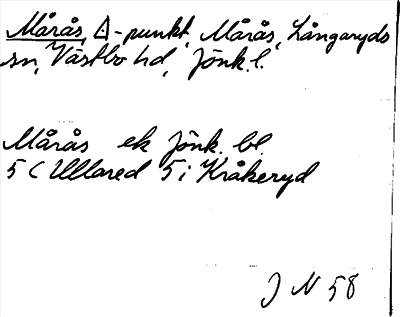 Mårås, Δ-punkt, Mårås, Långaryds
sn, Västbo hd, Jönk. l.
Mårås ek Jönk. bl.
5 C Ullared 5 i Kråkeryd
J N 58